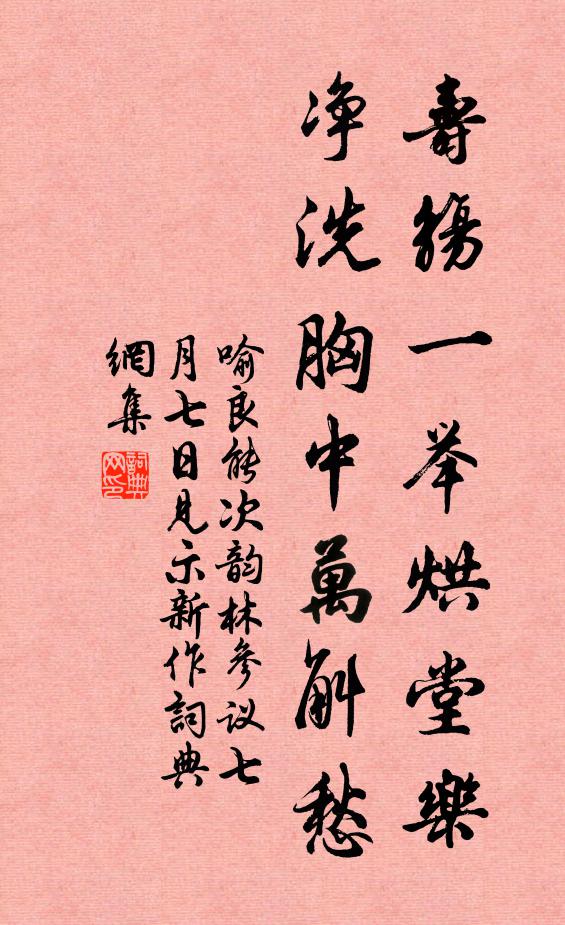 壽觴一举烘堂樂
净洗胸中萬斛愁
喻良能次韵林參议七
月七日見示新作詞典
網集
詞典网印